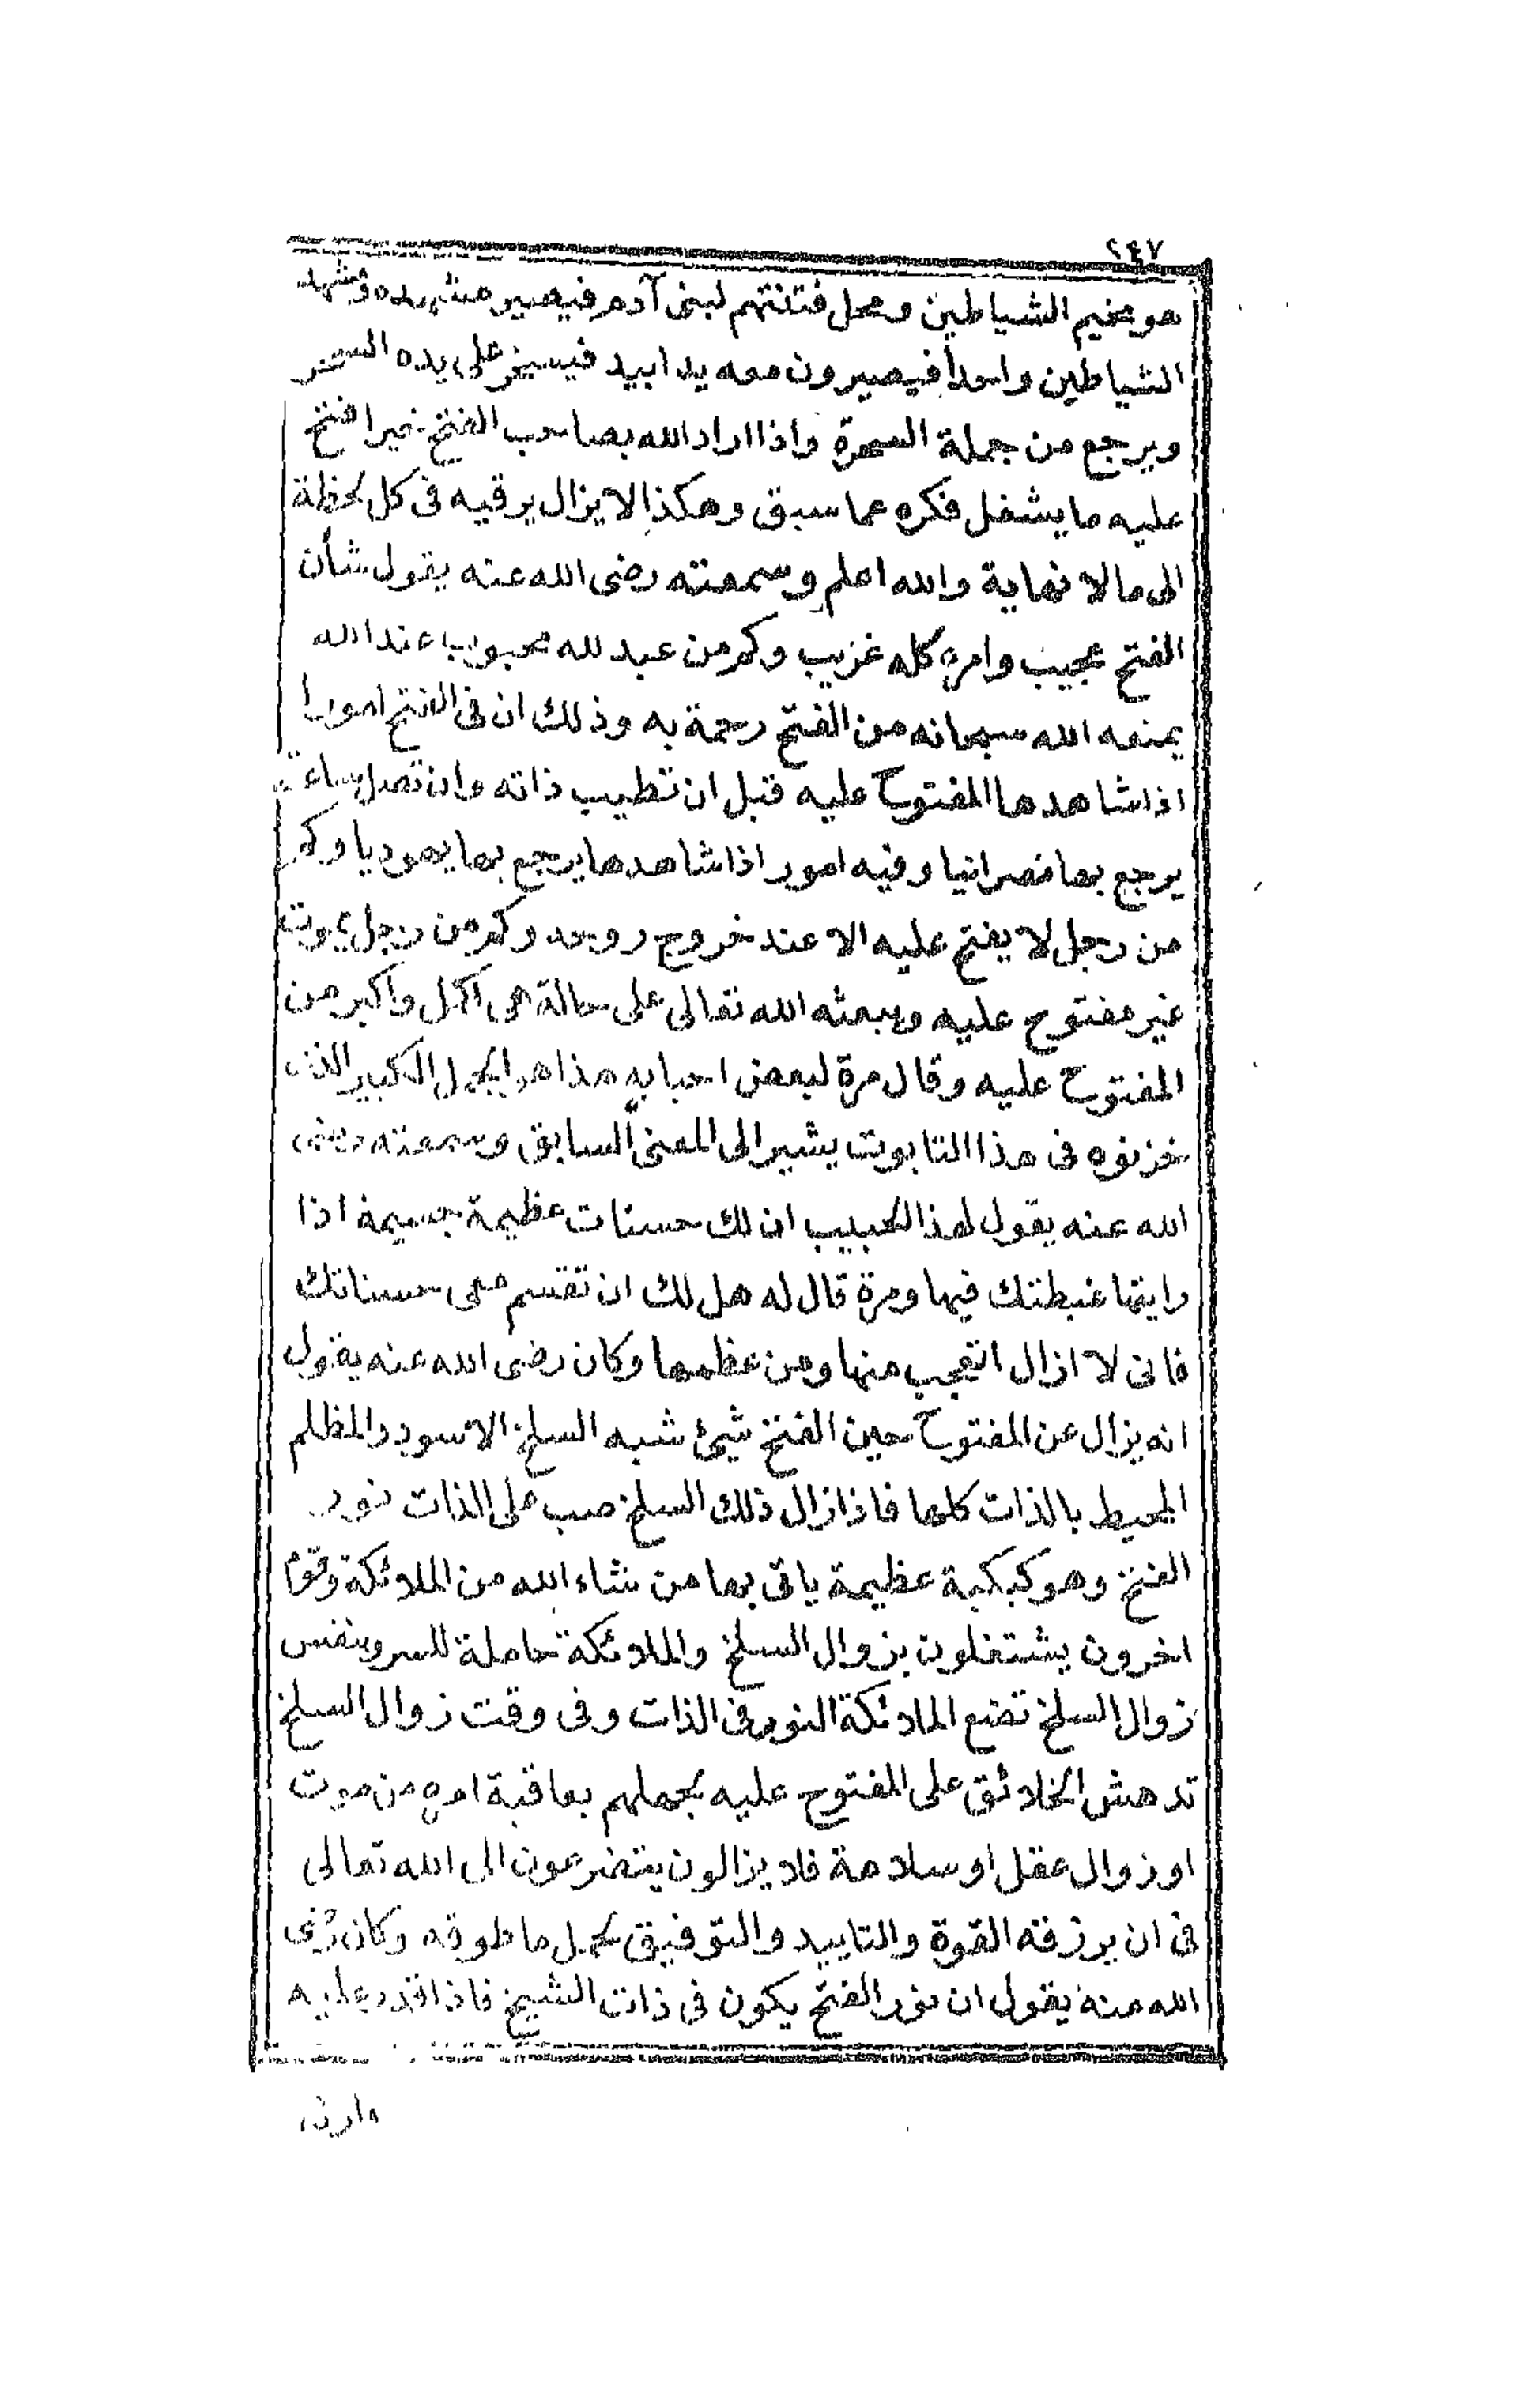 ٢٤٧
هو مخيم الشياطين ومحل فتنتهم لبنى آدم فيصير مشهده ومشهد
الشياطين واحدا فيصيرون معه يدا بيد فيسخر على يده السحر
ويرجع من جملة السحرة واذا اراد الله بصاحب الفتح خيرا فتح
عليه ما يشغل فكره عما سبق وهكذا لا يزال يرقيه فى كل لحظة
الى ما لا نهاية والله اعلم وسمعته رضى الله عنه يقول شأن
الفتح عجيب وامره كله غريب وكم من عبد لله محبوب عند الله
يمنعه الله سبحانه من الفتح رحمة به وذلك ان فى الفتح امورا
اذا شاهدها المفتوح عليه قبل ان تطيب ذاته وان تصل ساعته
يرجع بها نصرانيا وفيه امور اذا شاهدها يرجع بها يهوديا وكم
من رجل لا يفتح عليه الا عند خروج روحه وكم من رجل يموت
غير مفتوح عليه ويبعثه الله تعالى على حالة هى اكمل واكبر من
المفتوح عليه وقال مرة لبعض احبابه هذا هو الجمل الكبير الذى
خزنوه فى هذا التابوت يشير الى المعنى السابق وسمعته رضى
الله عنه يقول لهذا الحبيب ان لك حسنات عظيمة جسيمة اذا
رايتها غبطتك فيها ومرة قال له هل لك ان تقسم معى حسناتك
فانى لا ازال اتعجب منها ومن عظمها وكان رضى الله عنه يقول
انه يزال عن المفتوح حين الفتح شئ شبه السلخ الاسود المظلم
المحيط بالذات كلها فاذا زال ذلك السلخ صب على الذات نور
الفتح وهو كبكبة عظيمة ياتى بها من شاء الله من الملائكة وقوم
اخرون يشتغلون بزوال السلخ والملائكة حاملة للسر وبنفس
زوال السلخ تضع الملائكة النور فى الذات وفى وقت زوال السلخ
تدهش الخلائق على المفتوح عليه لجهلهم بعاقبة امره من موت
او زوال عقل او سلامة فلا يزالون يتضرعون الى الله تعالى
فى ان يرزقه القوة والتاييد والتوفيق لحمل ما طوقه وكان رضى
الله عنه يقول ان نور الفتح يكون فى ذات الشيخ فاذا قدر عليه